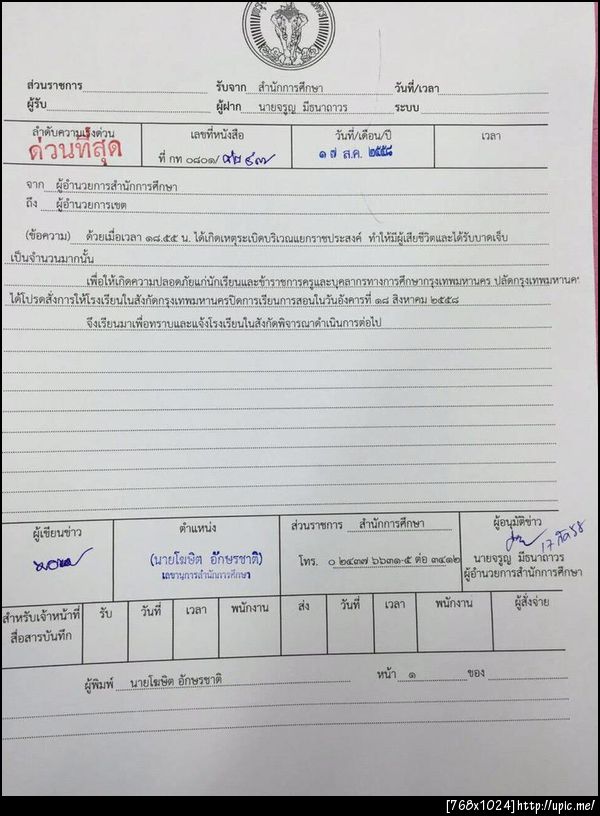 ส่วนราชการ รับจาก สำนักการศึกษา วันที่/เวลา
ผู้รับ ผู้ฝาก นายจรูญ มีธนาถาวร ระบบ
ลำดับความเร่งด่วน เลขที่หนังสือ วันที่/เดือน/ปี เวลา
ด่วนที่สุด ที่ กท ๐๘๐๑/ ๑๗ ส.ค. ๒๕๕๘
จาก ผู้อำนวยการสำนักการศึกษา
ถึง ผู้อำนวยการเขต
(ข้อความ) ด้วยเมื่อเวลา ๑๘.๕๕ น. ได้เกิดเหตุระเบิดบริเวณแยกราชประสงค์ ทำให้มีผู้เสียชีวิตและได้รับบาดเจ็บ
เป็นจำนวนมากนั้น
เพื่อให้เกิดความปลอดภัยแก่นักเรียนและข้าราชการครูและบุคลากรทางการศึกษากรุงเทพมหานคร ปลัดกรุงเทพมหานคร
ได้โปรดสั่งการให้โรงเรียนในสังกัดกรุงเทพมหานครปิดการเรียนการสอนในวันอังคารที่ ๑๘ สิงหาคม ๒๕๕๘
จึงเรียนมาเพื่อทราบและแจ้งโรงเรียนในสังกัดพิจารณาดำเนินการต่อไป
ผู้เขียนข่าว ตำแหน่ง ส่วนราชการ สำนักการศึกษา ผู้อนุมัติข่าว
๑๗ สค ๕๘
(นายโฆษิต อักษรชาติ) โทร. ๐ ๒๔๓๗ ๖๖๓๑-๕ ต่อ ๓๔๑๒ นายจรูญ มีธนาถาวร
เลขานุการสำนักการศึกษา ผู้อำนวยการสำนักการศึกษา
สำหรับเจ้าหน้าที่ รับ วันที่ เวลา พนักงาน ส่ง วันที่ เวลา พนักงาน ผู้สั่งจ่าย
สื่อสารบันทึก
ผู้พิมพ์ นายโฆษิต อักษรชาติ หน้า ๑ ของ
[768x1024] http://upic.me/